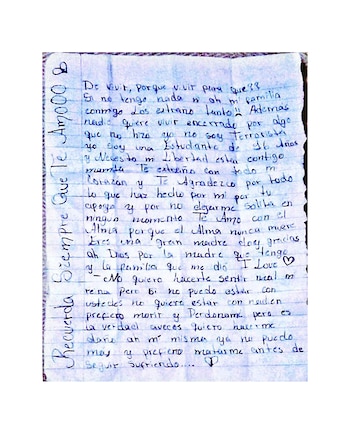 De vivir, porque vivir para que??
En no tengo nada ni ah mi familia
conmigo Los extraño tanto y Ademas
nadie quiere vivir encerrado por algo
que no hizo yo no soy Terrorista
yo soy una Estudiante de 16 Años
y Necesito mi Libertad estar contigo
mamita Te extraño con todo mi
Corazon y Te Agradezco por todo
lo que has hecho por mi por tu
apoyo y por no dejarme Solita en
ningun momento Te Amo con el
Alma porque el Alma nunca muere
Eres una gran madre doy gracias
ah Dios por la madre que tengo
y la familia que me dió I Love
I-No quiero hacerte sentir mal mi
reina pero Si no puedo estar con
ustedes no quiere estar con nadien
prefiero morir y Perdoname pero es
la verdad aveces quiero hacerme
daño ah mi misma ya no puedo
mas y prefiero matarme antes de
seguir sufriendo....
Recuerda Siempre Que Te Amoooo